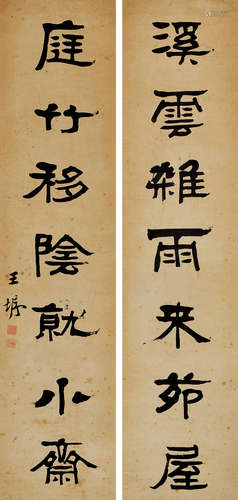 溪雲雜雨来茆屋
庭竹移陰就小齋
王堃